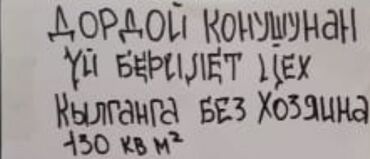 ДОРДОЙ КОНУШУНАН
ҮЙ БЕРИЛЕТ ЦЕХ
КЫЛГАНГА БЕЗ ХОЗЯИНА
130 КВ М²